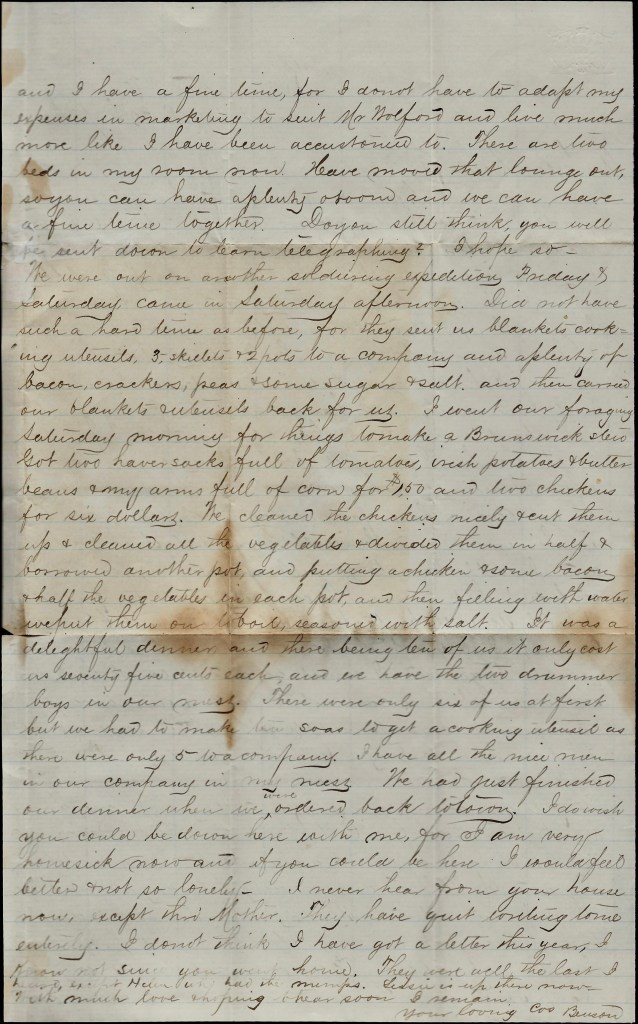 and I have a fine time, for I donot have to adapt my
expenses in marketing to suit Mr Wolford and live much
more like I have been accustomed to. There are two
beds in my room now. Have moved that lounge out,
soyou can have aplenty oroom and we can have
a fine time together. Doyou still think, you will
be sent down to learn telegraphing? I hope so —
We were out on another soldiering expedition, Friday &
Saturday came in Saturday afternoon. Did not have
such a hard time as before, for they sent us blankets cook-
ing utensils, 3, skillets & 2 pots to a company and aplenty of
bacon, crackers, peas & some sugar & salt. and then carried
our blankets & utensils back for us. I went our foraging
Saturday morning for things tomake a Brunswick stew
Got two haversacks full of tomatoes, irish potatoes & butter
beans & my arms full of corn for $1,50 and two chickens
for six dollars. We cleaned the chickens nicely & cut them
up & cleaned all the vegetables & divided them in half &
borrowed another pot, and putting achicken & some bacon
& half the vegetables in each pot, and then filling with water
weput them on toboil, seasoned with salt. It was a
delightful dinner and there being ten of us it only cost
us seventy five cents each, and we have the two drummer
boys in our mess. There were only six of us at first
but we had to make ten soas to get a cooking utensil as
there were only 5 to a company. I have all the nice men
in our company in my mess. We had just finished
our dinner when we were ordered back totown. I do wish
you could be down here with me, for I am very
homesick now and if you could be here I would feel
better & not so lonely — I never hear from your house
now, except thro Mother. They have quit writing tome
entirely. I donot think I have got a letter this year, I
know not since you went home. They were well, the last I
heard, except had the mumps. Lessie is up there now —
With much love & hoping to hear soon I remain
your loving Cos Benson